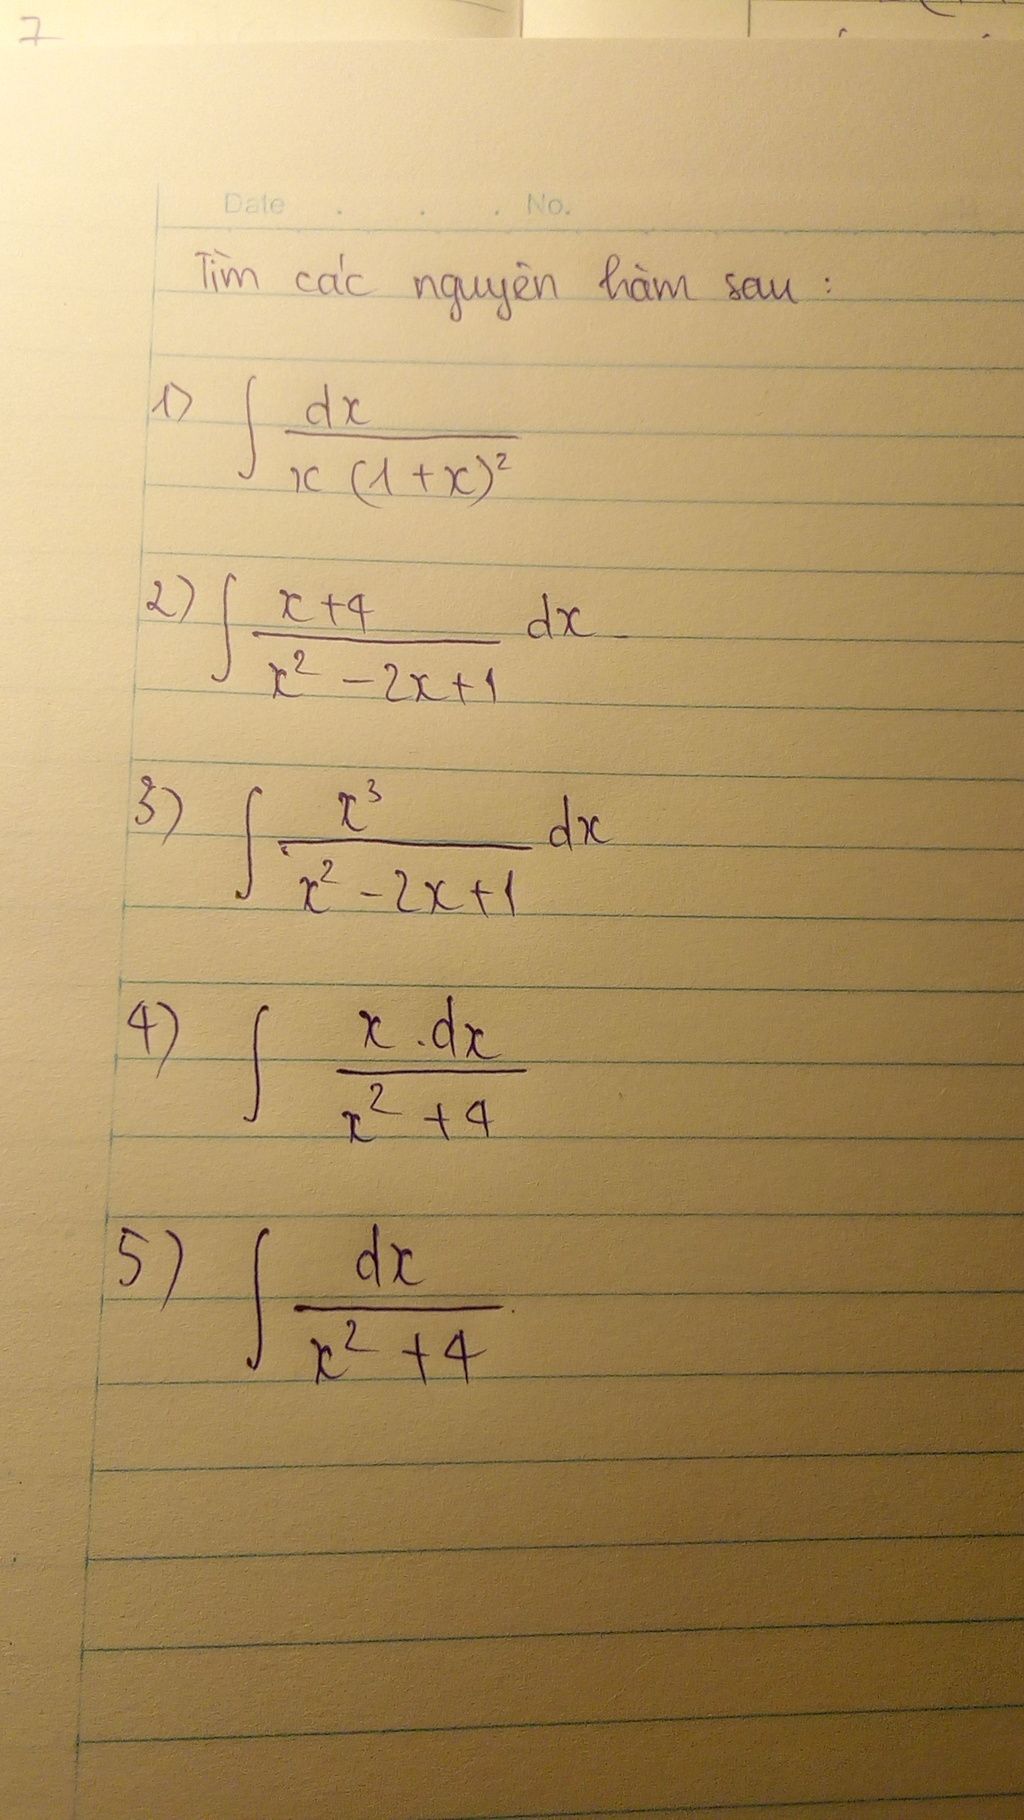 7
Date . . . No.
Tìm các nguyên hàm sau :
1) ∫ dx / x (1+x)²
2) ∫ x+4 / x² - 2x+1 dx
3) ∫ x³ / x² - 2x+1 dx
4) ∫ x . dx / x² + 4
5) ∫ dx / x² + 4